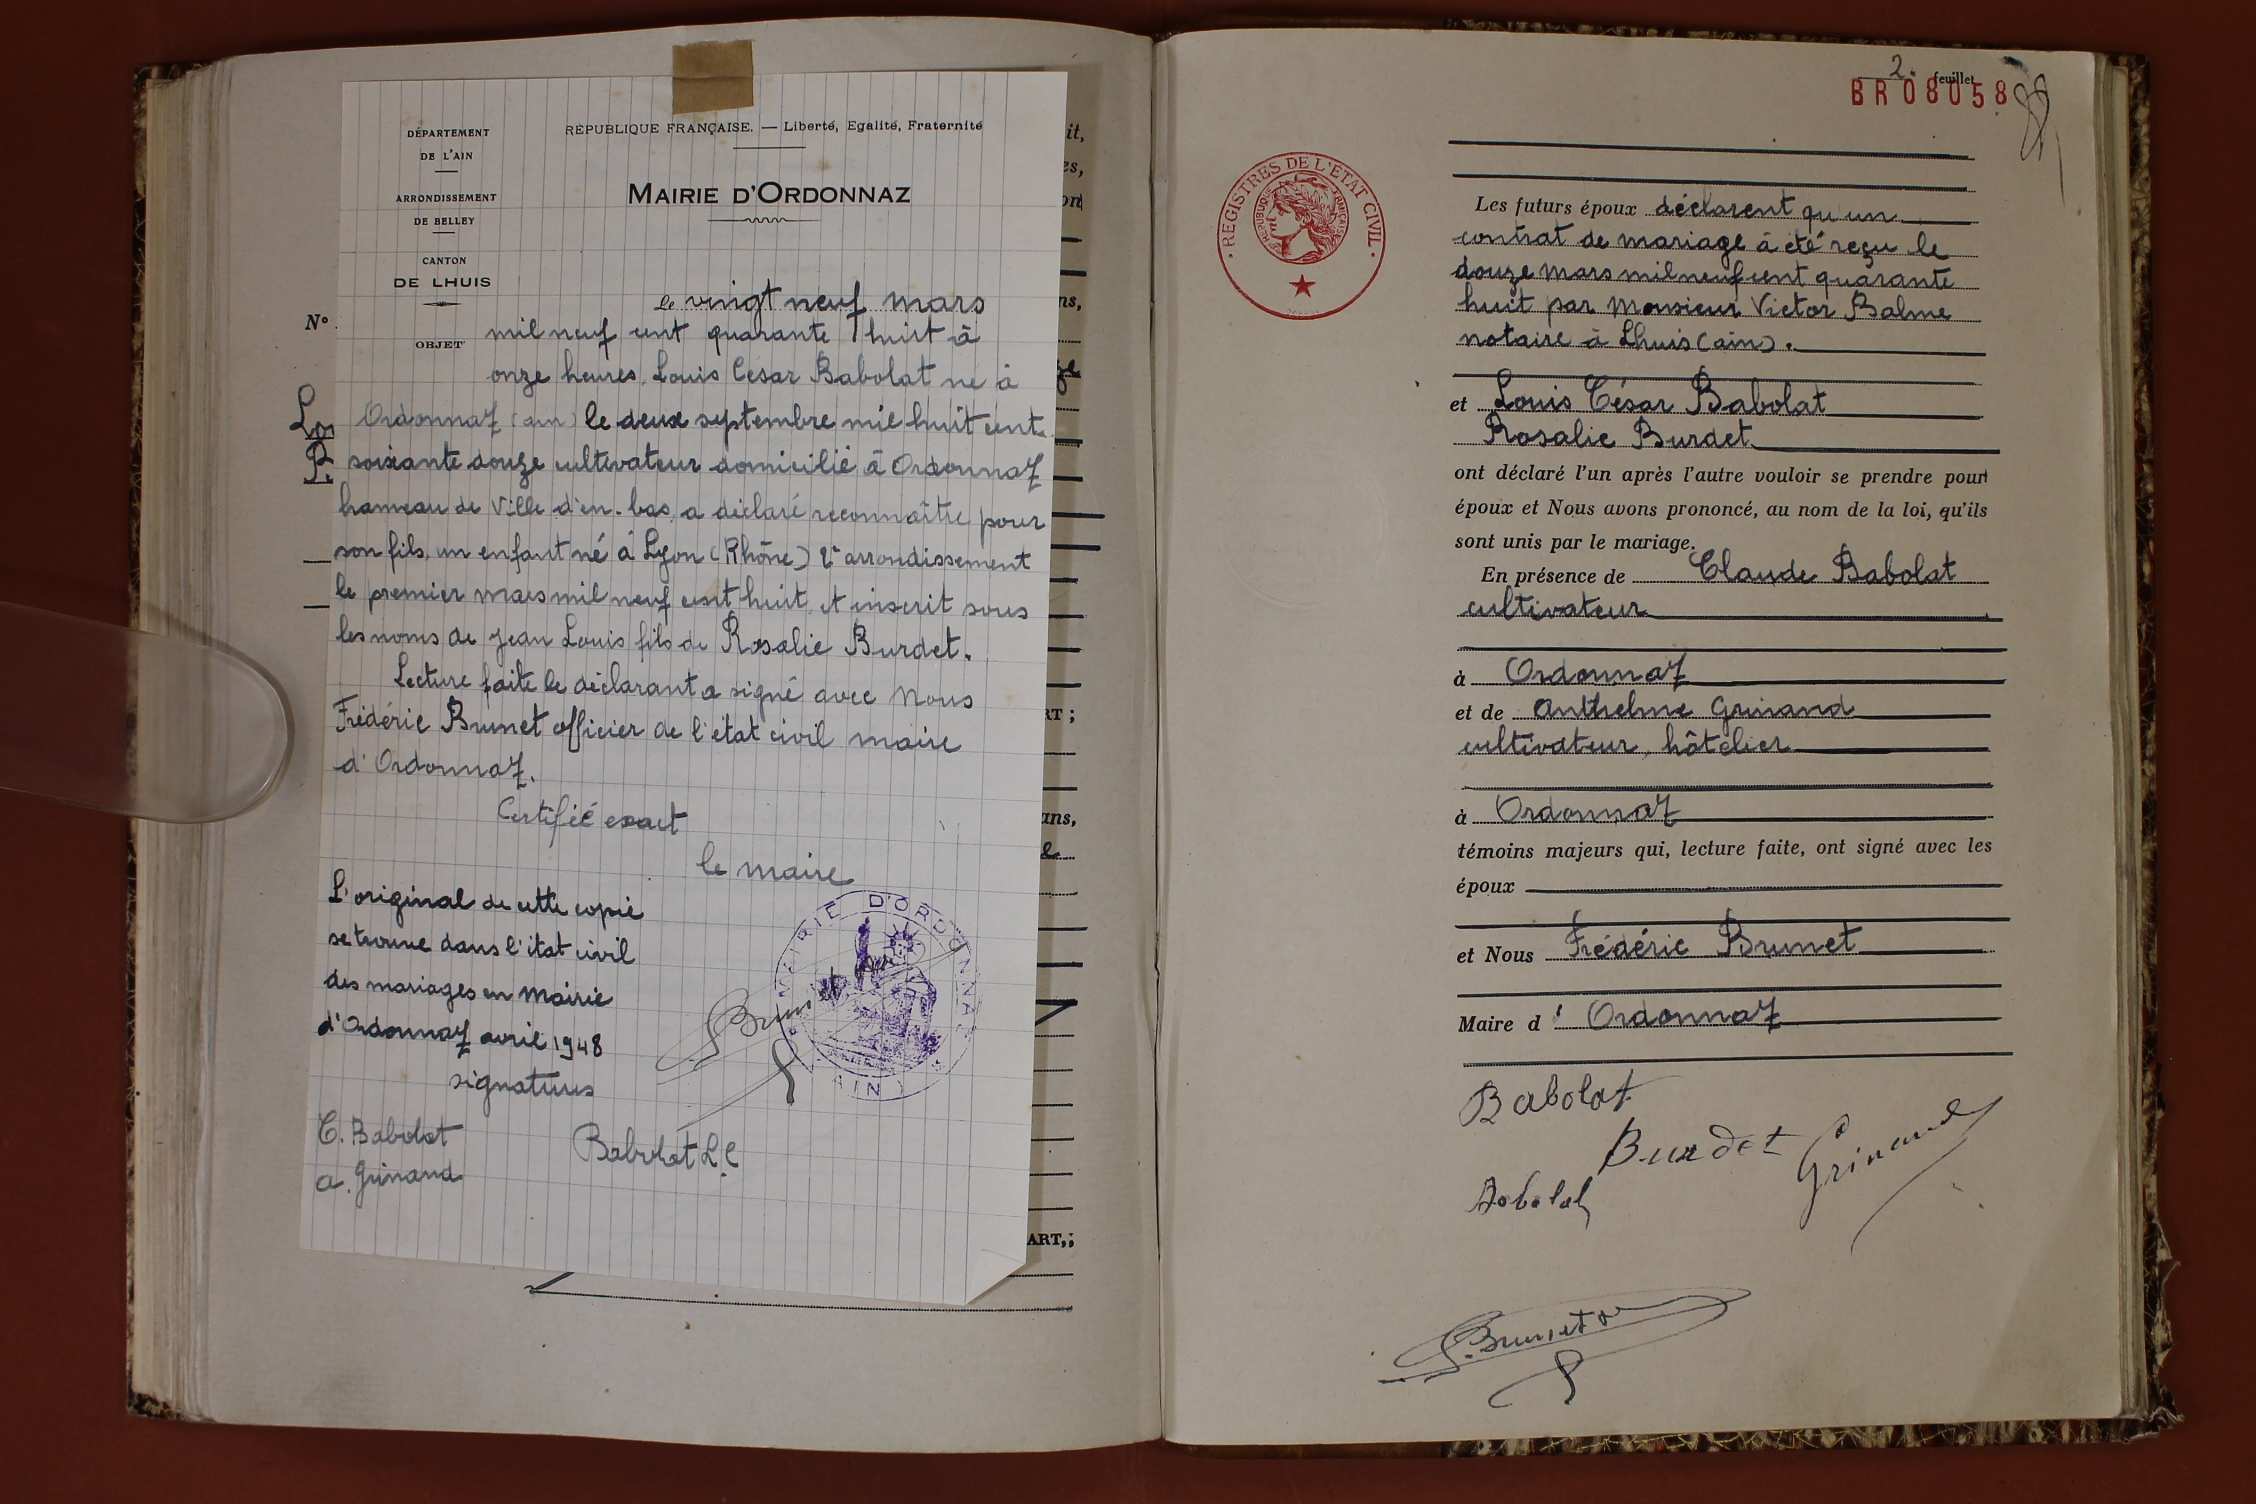 DÉPARTEMENT
DE L'AIN
ARRONDISSEMENT
DE BELLEY
CANTON
DE LHUIS
OBJET
RÉPUBLIQUE FRANÇAISE. — Liberté, Egalité, Fraternité
MAIRIE D'ORDONNAZ
le vingt neuf mars
mil neuf cent quarante huit à
onze heures, Louis César Babolat né à
Ordonnaz (ain) le deux septembre mil huit cent
soixante douze cultivateur domicilié à Ordonnaz
hameau de Ville d'en-bas, a déclaré reconnaître pour
son fils, un enfant né à Lyon (Rhône) 2e arrondissement
le premier mars mil neuf cent huit, et inscrit sous
les noms de Jean Louis fils de Rosalie Burdet.
Lecture faite le déclarant a signé avec Nous
Frédéric Brunet officier de l'état civil maire
d'Ordonnaz.
Certifié exact
le maire
L'original de cette copie
se trouve dans l'état civil
des mariages en mairie
d'Ordonnaz avril 1948
signatures
C. Babolat
a. Grinand
Babolat L.C
Brunet
MAIRIE D'ORDONNAZ
(AIN)
N°
it,
es,
on
ns,
RT ;
ans,
e
ART,;
2. feuillet
BR08058
REGISTRES DE L'ÉTAT CIVIL
REPUBLIQUE FRANÇAISE
Les futurs époux déclarent qu'un
contrat de mariage à été reçu le
douze mars mil neuf cent quarante
huit par Monsieur Victor Balme
notaire à Lhuis (ain).
et Louis César Babolat
Rosalie Burdet
ont déclaré l'un après l'autre vouloir se prendre pour
époux et Nous avons prononcé, au nom de la loi, qu'ils
sont unis par le mariage.
En présence de Claude Babolat
cultivateur
à Ordonnaz
et de Anthelme Grinand
cultivateur, hôtelier
à Ordonnaz
témoins majeurs qui, lecture faite, ont signé avec les
époux
et Nous Frédéric Brunet
Maire d' Ordonnaz
Babolat
Burdet
Grinand
Babolat
Brunet